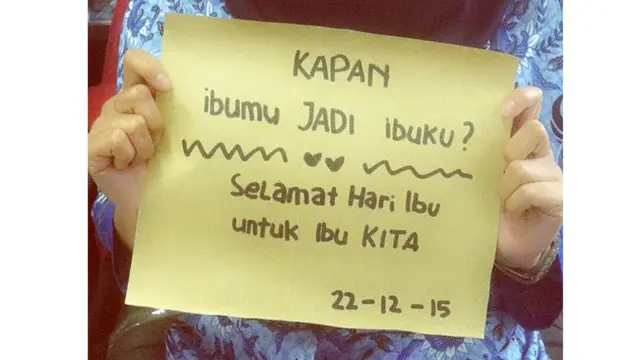 KAPAN
ibumu JADI ibuku?
Selamat Hari Ibu
untuk Ibu KITA
22-12-15